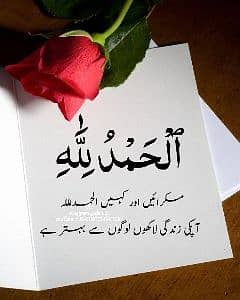 ٱلْحَمْدُ لِلَّٰهِ
مسکرائیں اور کہیں الحمدللہ
آپکی زندگی لاکھوں لوگوں سے بہتر ہے